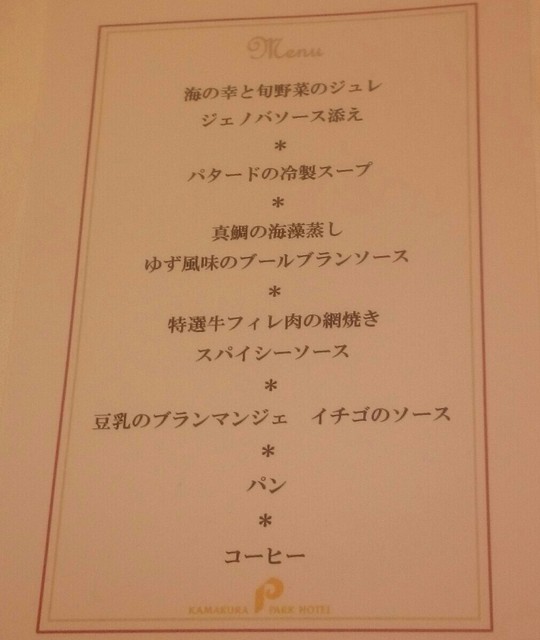 Menu
海の幸と旬野菜のジュレ
ジェノバソース添え
*
パタードの冷製スープ
*
真鯛の海藻蒸し
ゆず風味のブールブランソース
*
特選牛フィレ肉の網焼き
スパイシーソース
*
豆乳のブランマンジェ　イチゴのソース
*
パン
*
コーヒー
P
KAMAKURA PARK HOTEL